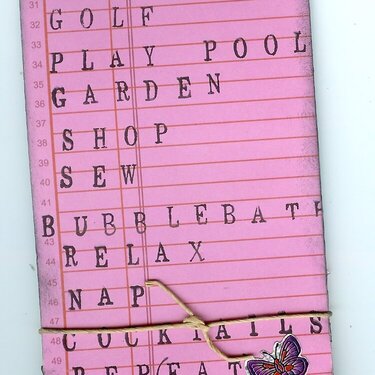 31
32 GOLF
33
34 PLAY POOL
35 GARDEN
36
37
38 SHOP
39
40 SEW
41
42
43 BUBBLEBATH
44 RELAX
45
46 NAP
47
48 COCKTAILS
49 REPEAT